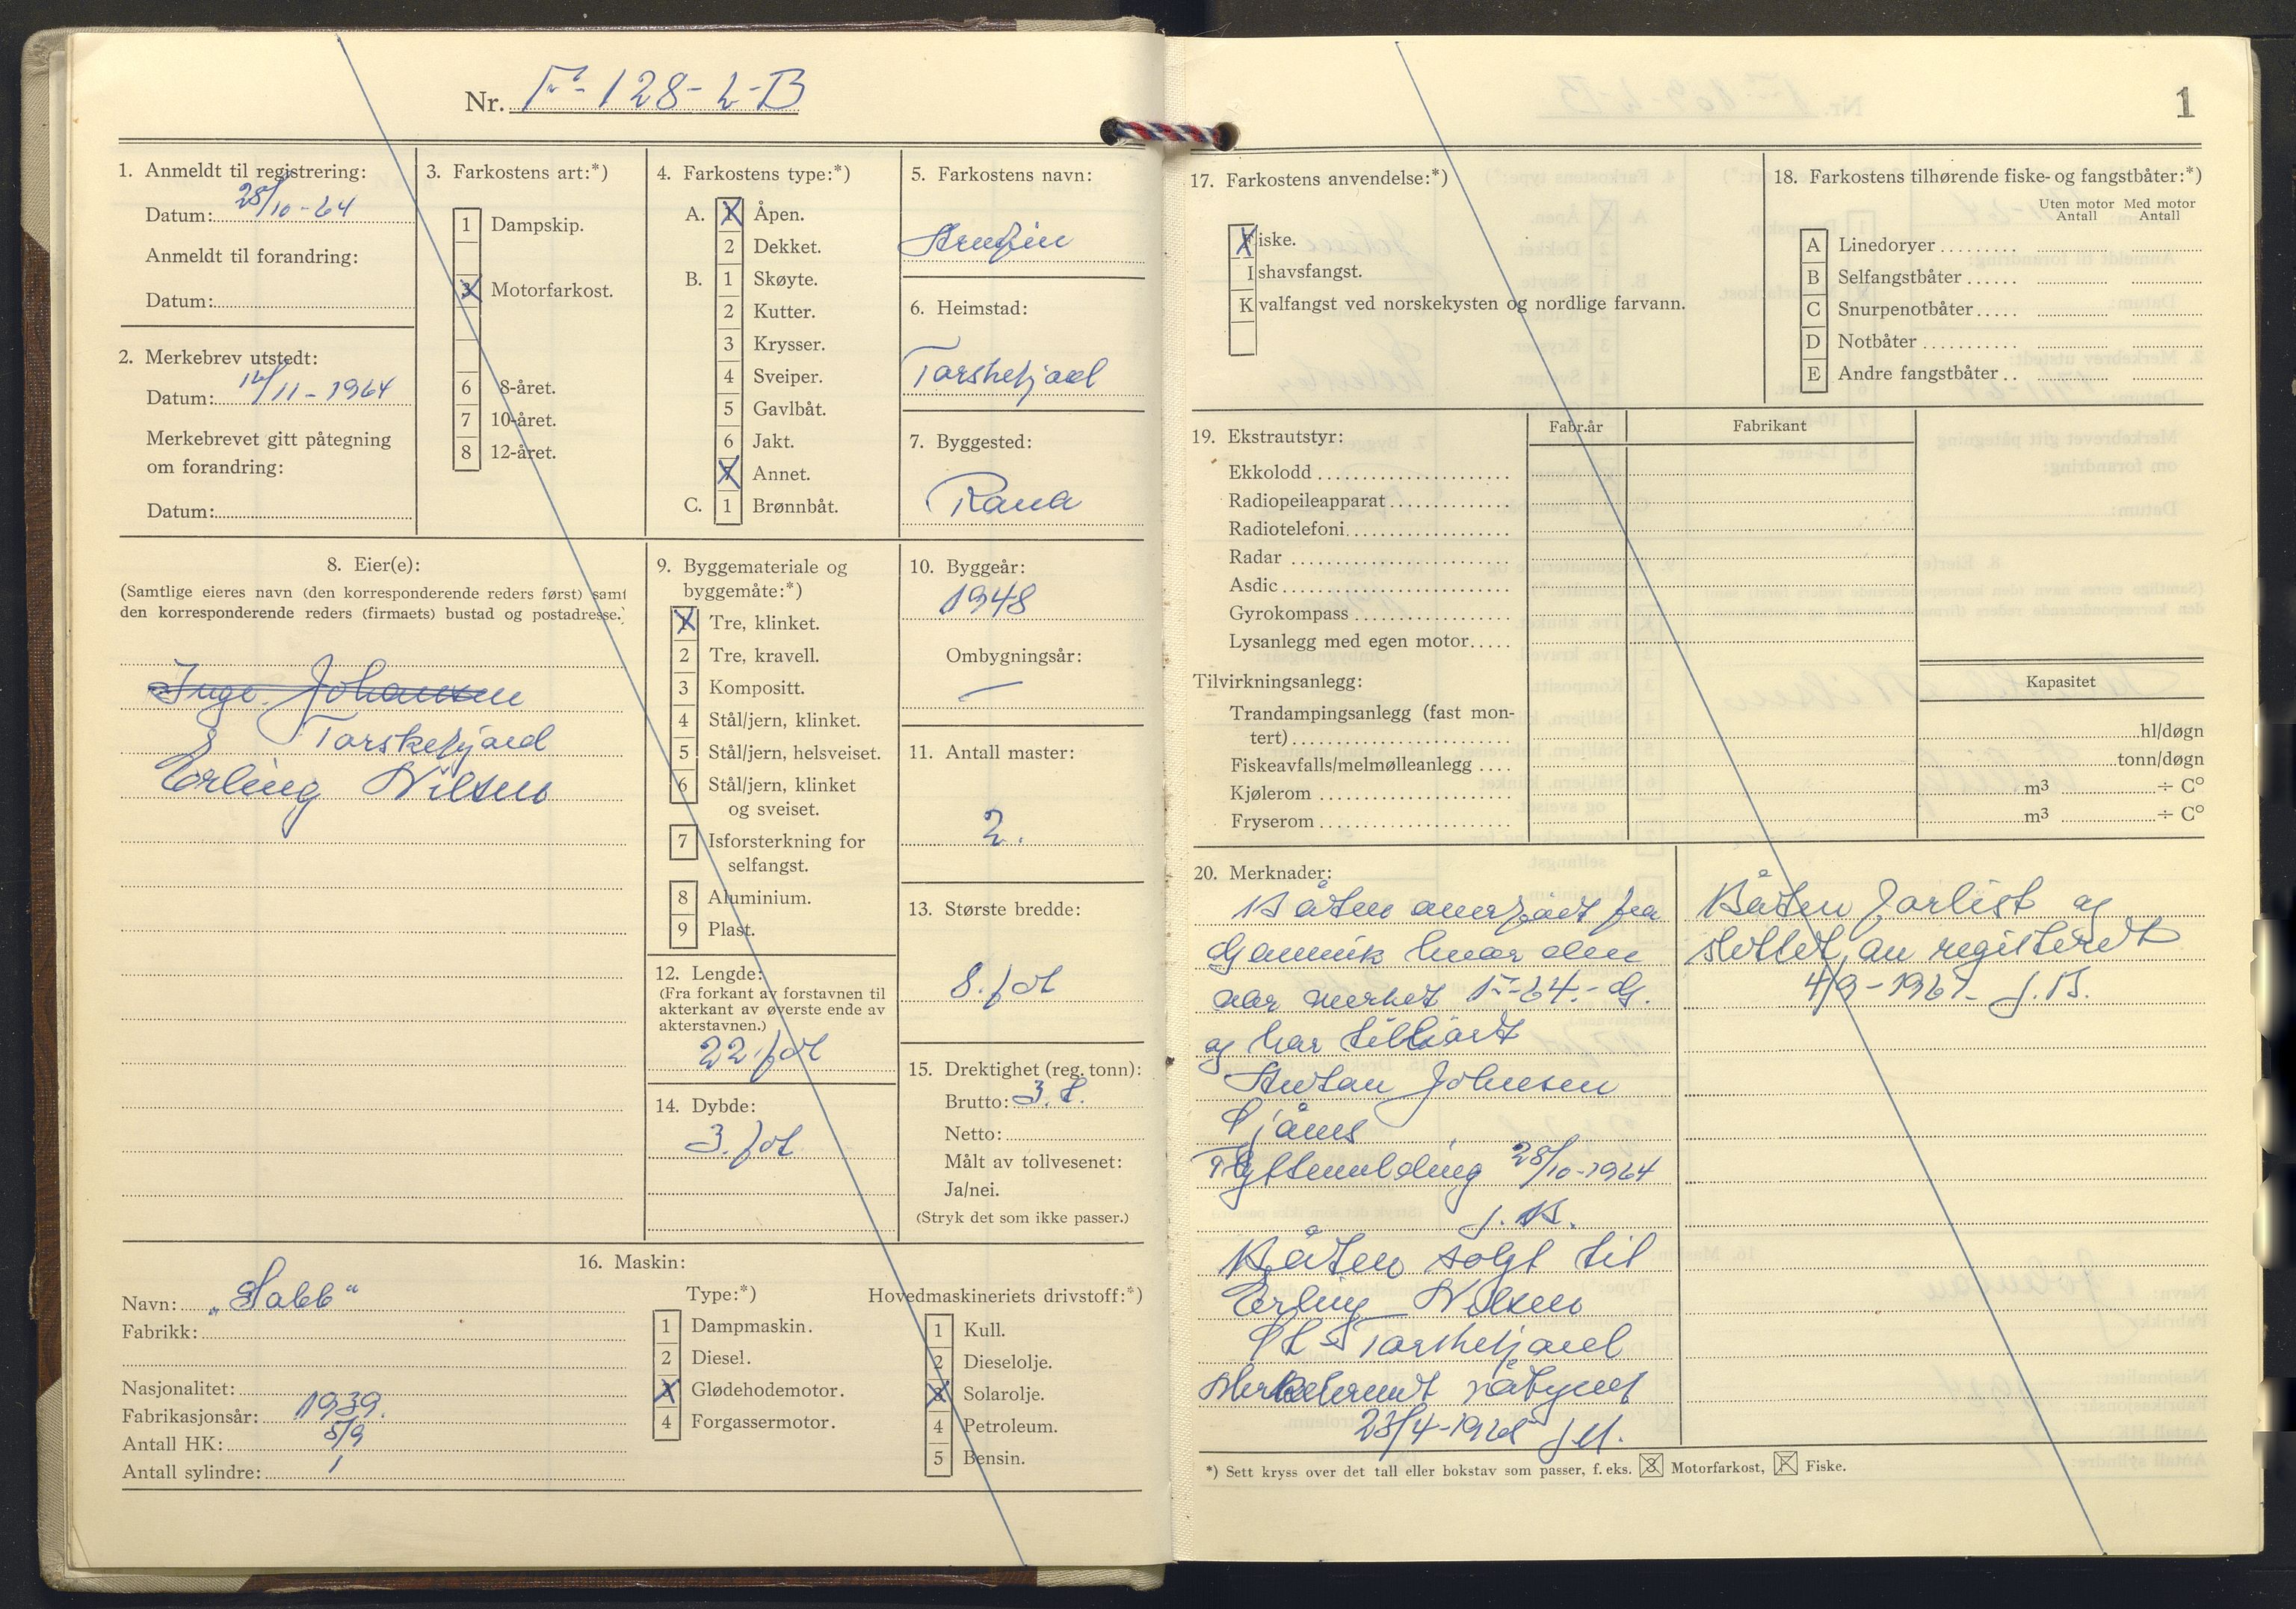 Nr. F-128-L-B
1. Anmeldt til registrering:
Datum: 28/10-64
Anmeldt til forandring:
Datum:
2. Merkebrev utstedt:
Datum: /11-1964
Merkebrevet gitt påtegning
om forandring:
Datum:
3. Farkostens art:*)
1 Dampskip.
3 Motorfarkost.
6 8-året.
7 10-året.
8 12-året.
4. Farkostens type:*)
A. 1 Åpen.
2 Dekket.
B. 1 Skøyte.
2 Kutter.
3 Krysser.
4 Sveiper.
5 Gavlbåt.
6 Jakt.
7 Annet.
C. 1 Brønnbåt.
5. Farkostens navn:
6. Heimstad:
Torskefjord
7. Byggested:
Rana
8. Eier(e):
(Samtlige eieres navn (den korresponderende reders først) samt
den korresponderende reders (firmaets) bustad og postadresse.)
Inge Johansen
Torskefjord
Erling Nilsen
9. Byggemateriale og
byggemåte:*)
1 Tre, klinket.
2 Tre, kravell.
3 Kompositt.
4 Stål/jern, klinket.
5 Stål/jern, helsveiset.
6 Stål/jern, klinket
og sveiset.
7 Isforsterkning for
selfangst.
8 Aluminium.
9 Plast.
10. Byggeår:
1948
Ombygningsår:
—
11. Antall master:
2.
12. Lengde:
(Fra forkant av forstavnen til
akterkant av øverste ende av
akterstavnen.)
22 fot
13. Største bredde:
8. fot
14. Dybde:
3. fot
15. Drektighet (reg. tonn):
Brutto: 3. t.
Netto:
Målt av tollvesenet:
Ja/nei.
(Stryk det som ikke passer.)
16. Maskin:
Navn: „Sabb“
Fabrikk:
Nasjonalitet:
Fabrikasjonsår: 1939.
Antall HK: 8/9
Antall sylindre: 1
Type:*)
1 Dampmaskin.
2 Diesel.
3 Glødehodemotor.
4 Forgassermotor.
Hovedmaskineriets drivstoff:*)
1 Kull.
2 Dieselolje.
3 Solarolje.
4 Petroleum.
5 Bensin.
1
17. Farkostens anvendelse:*)
Fiske.
Ishavsfangst.
Kvalfangst ved norskekysten og nordlige farvann.
18. Farkostens tilhørende fiske- og fangstbåter:*)
Uten motor Antall
Med motor Antall
A Linedoryer
B Selfangstbåter
C Snurpenotbåter
D Notbåter
E Andre fangstbåter
19. Ekstrautstyr:
Fabr.år
Fabrikant
Ekkolodd
Radiopeileapparat
Radiotelefoni
Radar
Asdic
Gyrokompass
Lysanlegg med egen motor
Tilvirkningsanlegg:
Kapasitet
Trandampingsanlegg (fast mon-
tert) hl/døgn
Fiskeavfalls/melmølleanlegg tonn/døgn
Kjølerom m³ ÷ C°
Fryserom m³ ÷ C°
20. Merknader:
Båten overført fra
Gamvik hvor den
var merket F-64-G.
og har tilhørt
Johnsen
Flyttemelding 28/10-1964
J.B.
Båten solgt til
Erling Nilsen
Torskefjord
påtegnet
Båten forlist og
slettet av registeret
4/9-1967 J.B.
*) Sett kryss over det tall eller bokstav som passer, f. eks. 3 Motorfarkost, F Fiske.